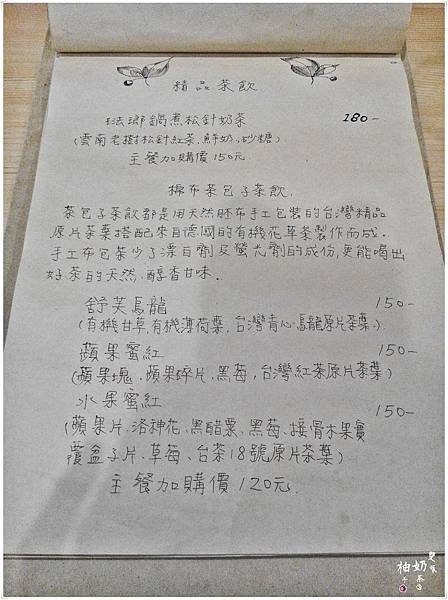 精品茶飲
琺瑯鍋煮松針奶茶 180-
(雲南老樹松針紅茶、鮮奶、砂糖)
主餐加購價150元
棉布茶包子茶飲.
茶包子茶飲都是用天然胚布手工包裝的台灣精品
原片茶葉搭配來自德國的有機花草茶製作而成.
手工布包茶少了漂白劑及螢光劑的成份,更能喝出
好茶的天然、醇香甘味.
舒芙烏龍 150-
(有機甘草,有機薄荷葉,台灣青心烏龍原片茶葉)
蘋果蜜紅 150-
(蘋果塊、蘋果碎片、黑莓,台灣紅茶原片茶葉)
水果蜜紅 150-
(蘋果片、洛神花、黑醋栗、黑莓、接骨木果實
覆盆子片、草莓、台茶18號原片茶葉)
主餐加購價120元.
柚子
奶茶